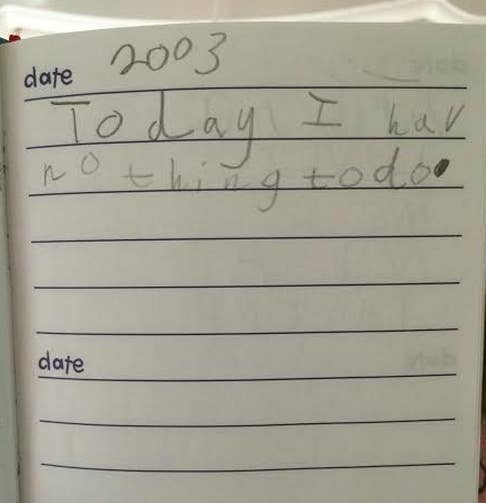 date 2003
Today I hav
nothing todo.
date